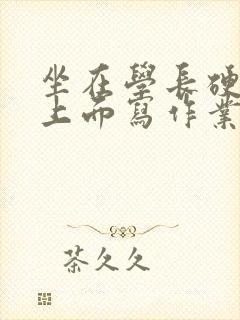 坐在學長硬
上而寫作業
茶久久